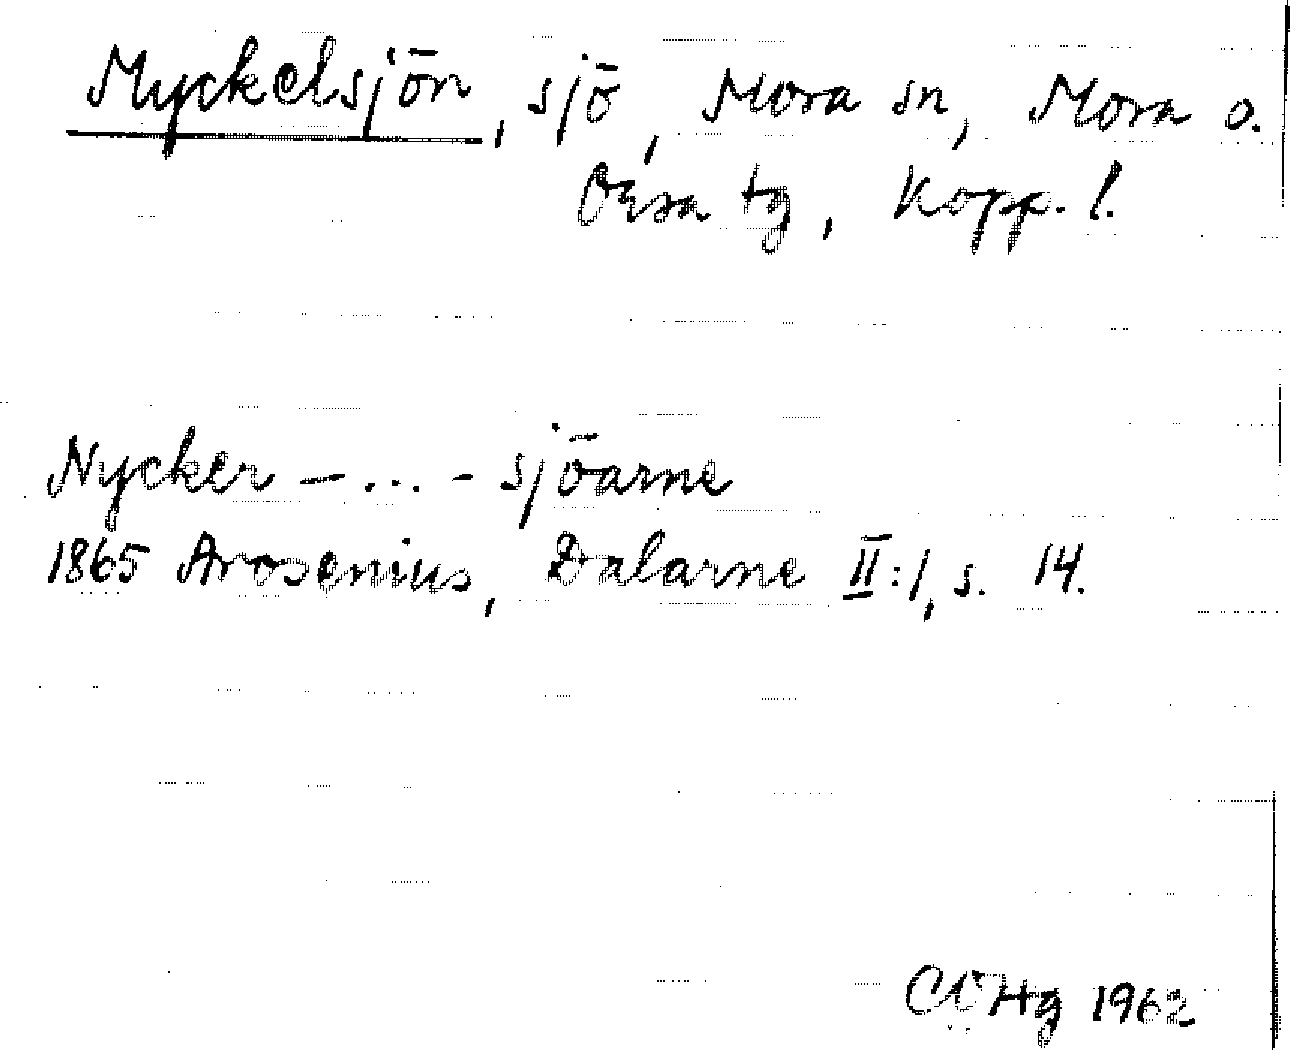 Myckelsjön, sjö, Mora sn, Mora o.
Orsa tg, Kopp. l.
Nycker - ... - sjöarne
1865 Arosenius, Dalarne II:1, s. 14.
1962